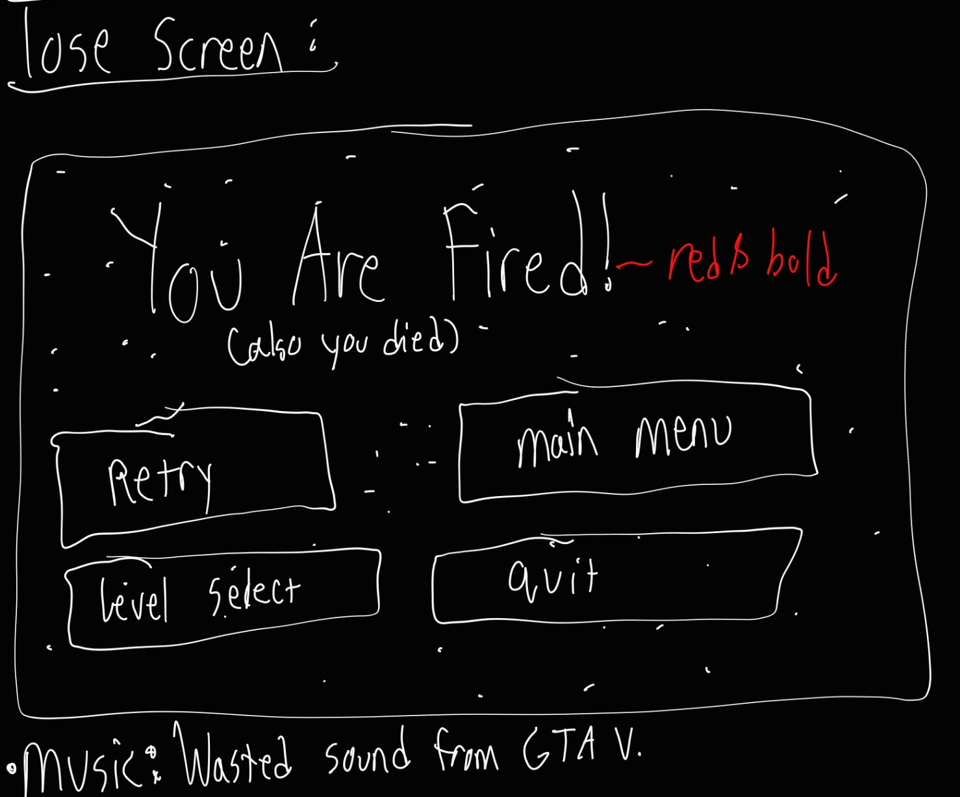 Lose Screen:
You Are Fired! ~ red & bold
(also you died)
Retry
main menu
Level select
quit
• Music: Wasted sound from GTA V.